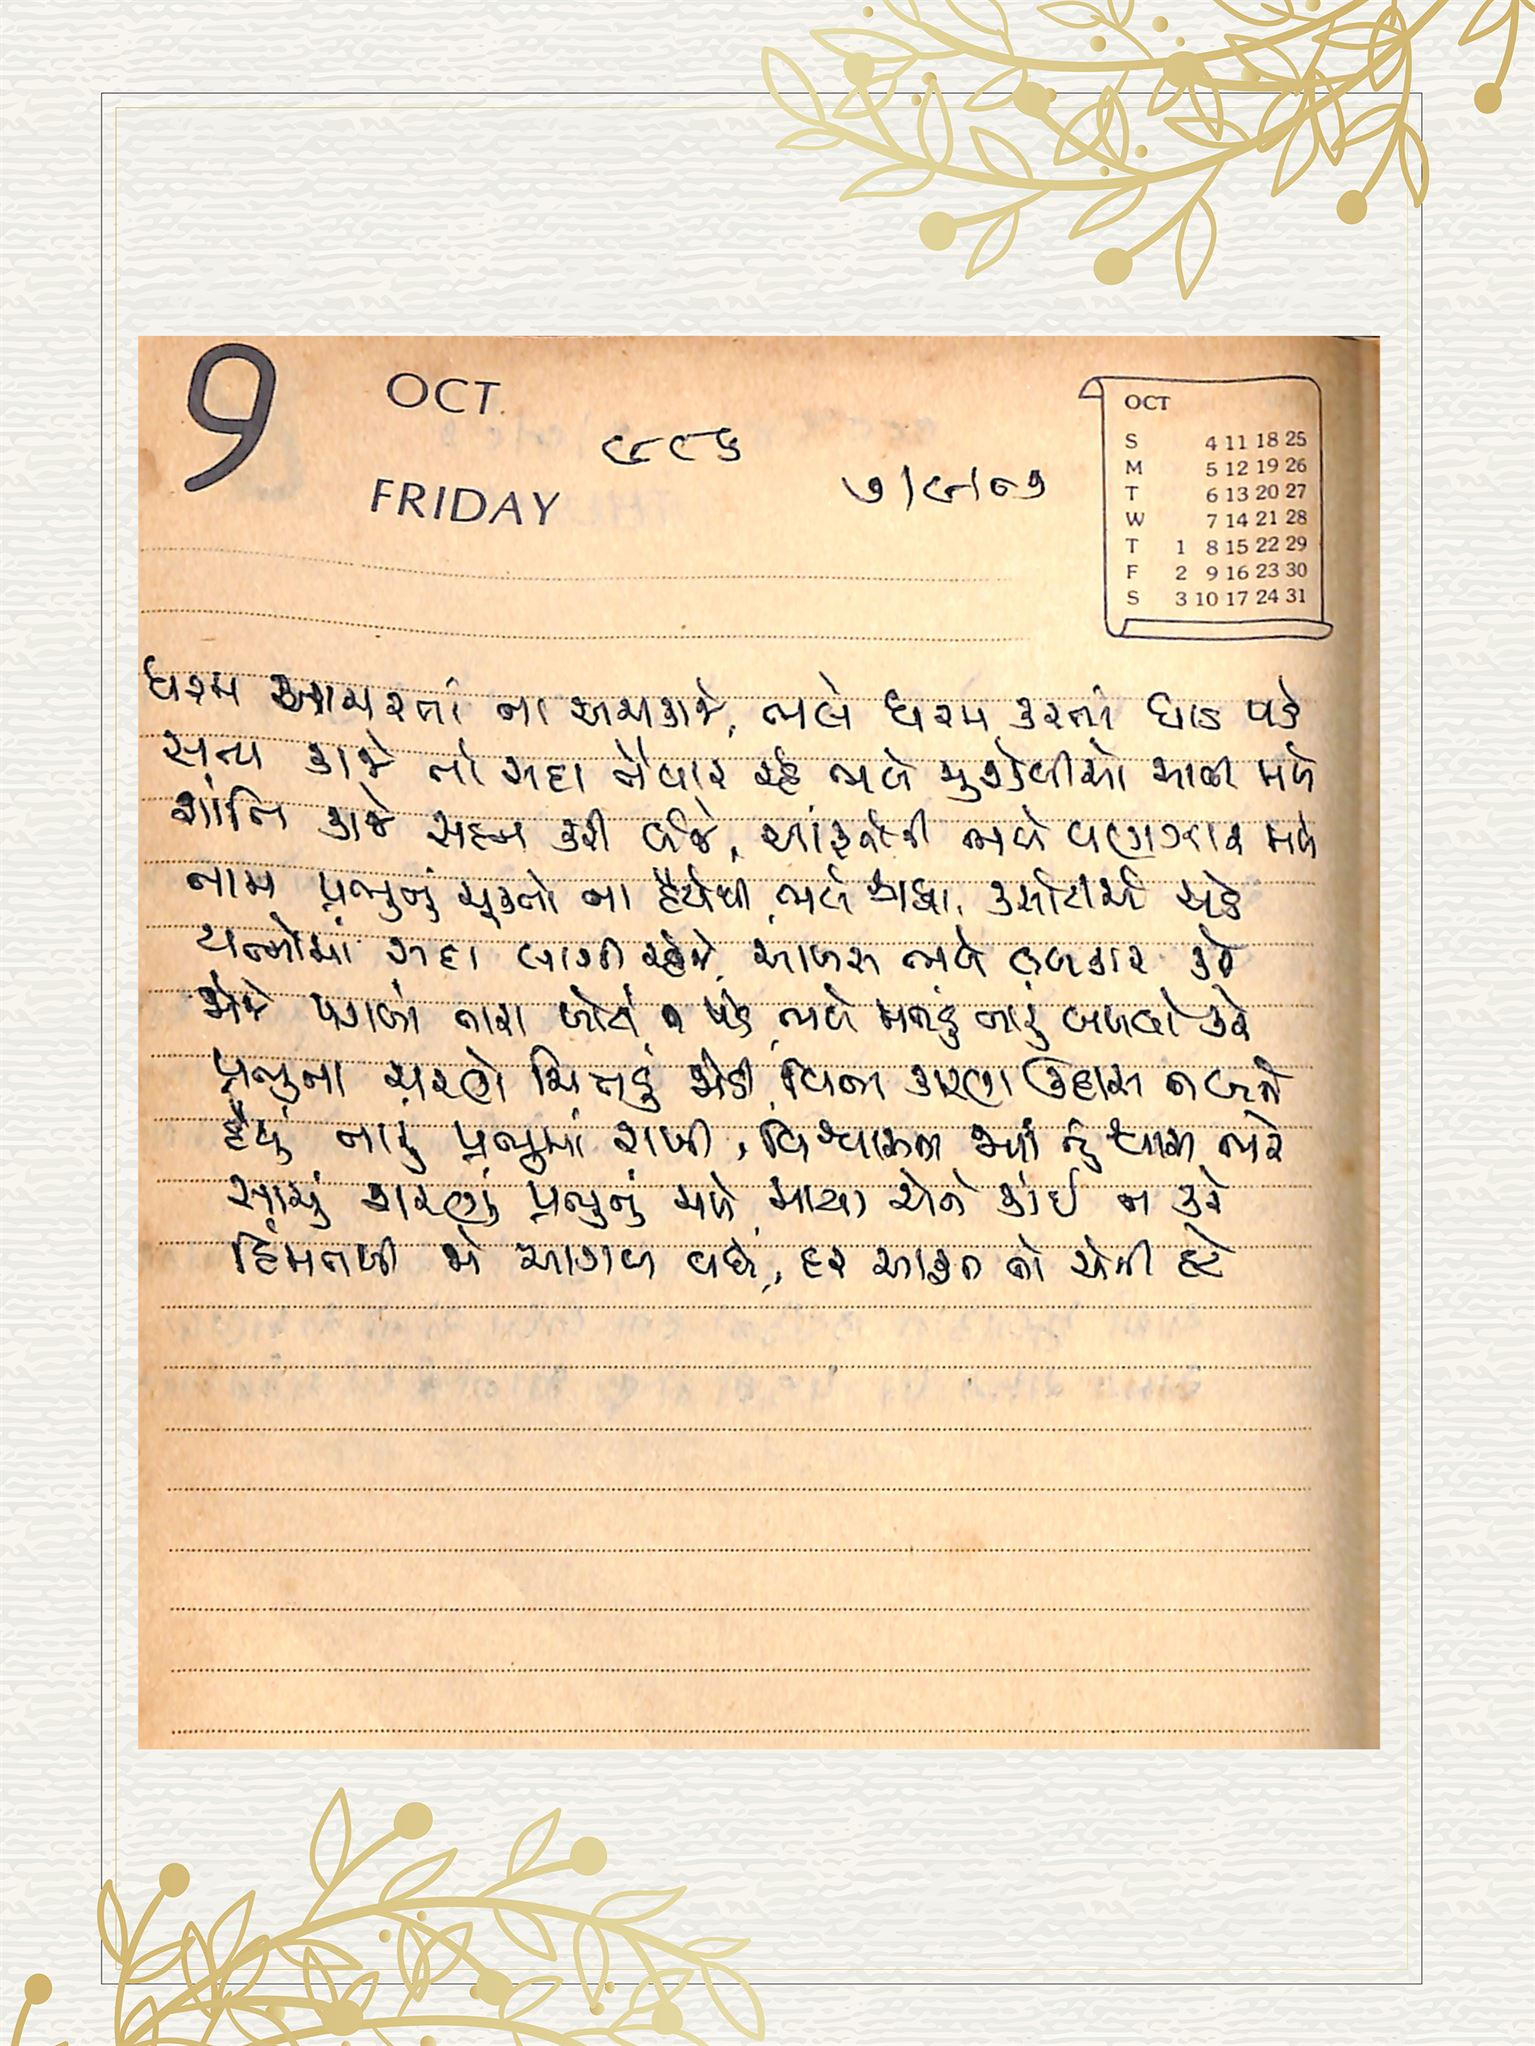 9
OCT.
FRIDAY
૯૯૬
૭/૯/૮૭
OCT
S 4 11 18 25
M 5 12 19 26
T 6 13 20 27
W 7 14 21 28
T 1 8 15 22 29
F 2 9 16 23 30
S 3 10 17 24 31
ધરમ આચરતાં ના અચકાજે, ભલે ધરમ કરતાં ધાડ પડે
સત્ય કાજે તો સદા તૈયાર રહે ભલે મુશ્કેલીઓ આવી મળે
શાંતિ કાજે સહન કરી લેજે, આફતોની ભલે વણઝાર મળે
નામ પ્રભુનું ચૂકતો ના હૈયેથી, ભલે કસોટીએ એ ચડે
યત્નોમાં સદા લાગી રહેજે, આળસ ભલે લલકાર કરે
જોજે પગલાં તારા ખોટાં ન પડે, ભલે મનડું તારું બળવો કરે
પ્રભુના ચરણે ચિત્તડું જોડી, વિના કારણ ઉદાસ ન બને
હૈયું તારું પ્રભુમાં રાખી, વિશ્વાસના તું શ્વાસ ભરે
સાચું શરણું પ્રભુનું મળે, માયા એને કાંઈ ન કરે
હિંમતથી જે આગળ વધે, હર આફત તો એની હટે